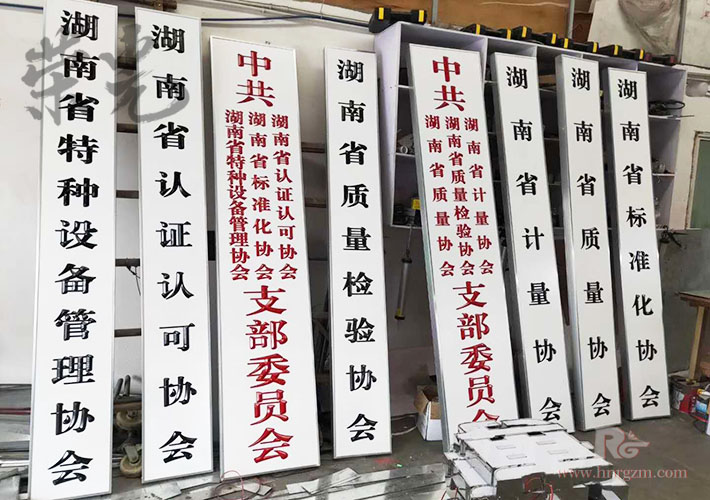 湖南省特种设备管理协会
湖南省认证认可协会
中共
湖南省认证认可协会
湖南省标准化协会
湖南省特种设备管理协会
支部委员会
湖南省质量检验协会
中共
湖南省计量协会
湖南省质量检验协会
湖南省质量协会
支部委员会
湖南省计量协会
湖南省质量协会
湖南省标准化协会
荣光
RG
www.hnrgzm.com